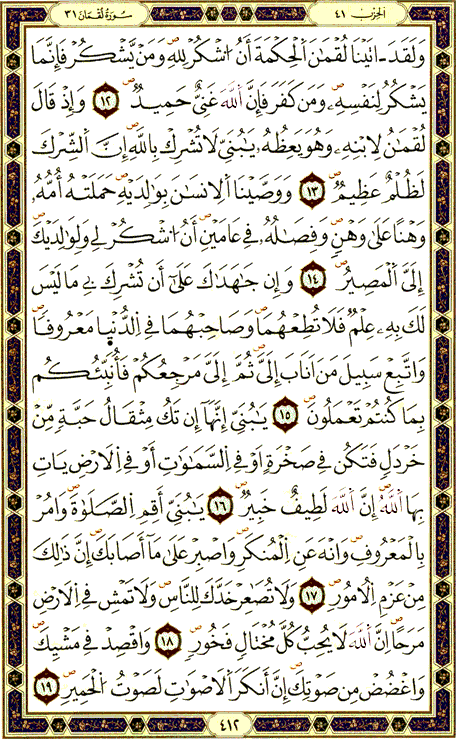 اَلْحِزْبُ ٤١
سُورَةُ لُقْمَانَ ٣١
وَلَقَدَ ـ اتَيْنَا لُقْمَٰنَ اَلْحِكْمَةَ أَنُ اُشْكُرْ لِلهِ وَمَنْ يَّشْكُرْ فَإِنَّمَا
يَشْكُرُ لِنَفْسِهِۦ وَمَن كَفَرَ فَإِنَّ اَللَّهَ غَنِيٌّ حَمِيدٌ ١٢ وَإِذْ قَالَ
لُقْمَٰنُ لِابْنِهِۦ وَهُوَ يَعِظُهُۥ يَٰبُنَيِّ لَا تُشْرِكْ بِاللَّهِ إِنَّ اَلشِّرْكَ
لَظُلْمٌ عَظِيمٌ ١٣ وَوَصَّيْنَا اَلِانسَٰنَ بِوَٰلِدَيْهِ حَمَلَتْهُ أُمُّهُۥ
وَهْنًا عَلَىٰ وَهْنٍ وَفِصَٰلُهُۥ فِي عَامَيْنِ أَنُ اُشْكُرْ لِي وَلِوَٰلِدَيْكَ
إِلَيَّ اَلْمَصِيرُ ١٤ وَإِن جَٰهَدَاكَ عَلَىٰٓ أَن تُشْرِكَ بِي مَا لَيْسَ
لَكَ بِهِۦ عِلْمٌ فَلَا تُطِعْهُمَا وَصَاحِبْهُمَا فِي اِلدُّنْيَا مَعْرُوفًا
وَاتَّبِعْ سَبِيلَ مَنَ اَنَابَ إِلَيَّ ثُمَّ إِلَيَّ مَرْجِعُكُمْ فَأُنَبِّئُكُم
بِمَا كُنتُمْ تَعْمَلُونَ ١٥ يَٰبُنَيِّ إِنَّهَا إِن تَكُ مِثْقَالُ حَبَّةٍ مِّنْ
خَرْدَلٍ فَتَكُن فِي صَخْرَةٍ اَوْ فِي اِلسَّمَٰوَٰتِ أَوْ فِي اِلَارْضِ يَاتِ
بِهَا اَللَّهُ إِنَّ اَللَّهَ لَطِيفٌ خَبِيرٌ ١٦ يَٰبُنَيِّ أَقِمِ اِلصَّلَوٰةَ وَامُرْ
بِالْمَعْرُوفِ وَانْهَ عَنِ اِلْمُنكَرِ وَاصْبِرْ عَلَىٰ مَآ أَصَابَكَ إِنَّ ذَٰلِكَ
مِنْ عَزْمِ اِلُامُورِ ١٧ وَلَا تُصَٰعِرْ خَدَّكَ لِلنَّاسِ وَلَا تَمْشِ فِي اِلَارْضِ
مَرَحًا اِنَّ اَللَّهَ لَا يُحِبُّ كُلَّ مُخْتَالٍ فَخُورٍ ١٨ وَاقْصِدْ فِي مَشْيِكَ
وَاغْضُضْ مِن صَوْتِكَ إِنَّ أَنكَرَ اَلَاصْوَٰتِ لَصَوْتُ اُلْحَمِيرِ ١٩
٤١٢